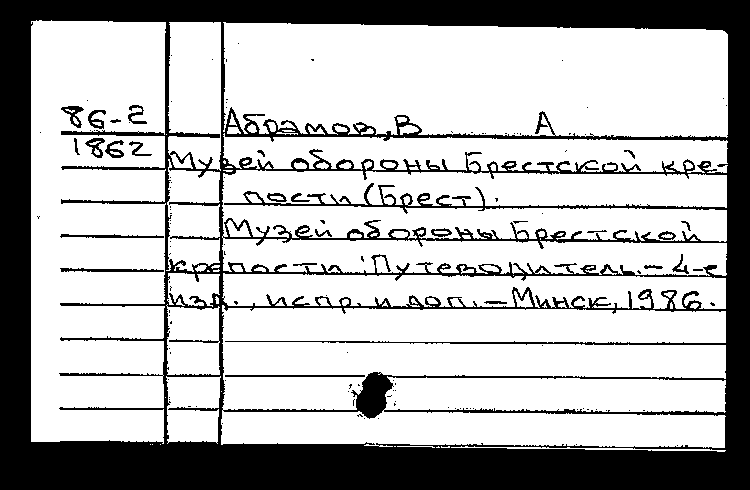 86-2 Абрамов, В А
1862 Музей обороны Брестской кре-
пости (Брест).
Музей обороны Брестской
крепости : Путеводитель. - 4-е
изд., испр. и доп. - Минск, 1986.